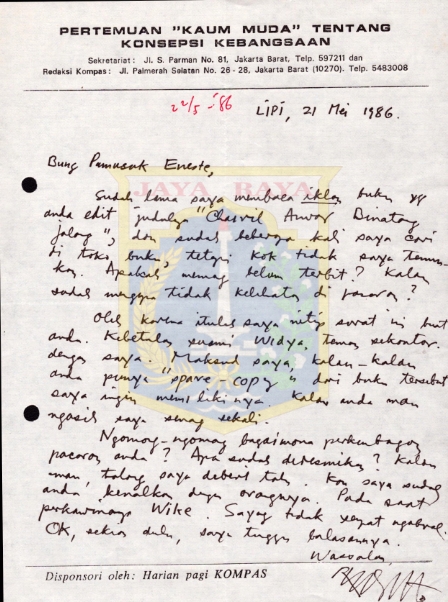 PERTEMUAN "KAUM MUDA" TENTANG
KONSEPSI KEBANGSAAN
Sekretariat: Jl. S. Parman No. 81, Jakarta Barat, Telp. 597211 dan
Redaksi Kompas: Jl. Palmerah Selatan No. 26-28, Jakarta Barat (10270). Telp. 5483008
22/5-'86
LIPI, 21 Mei 1986.
Bung Pamusuk Eneste,
JAYA RAYA
Sudah lama saya membaca iklan buku yg
anda edit judulnya "Chairil Anwar Binatang
Jalang", dan sudah beberapa kali saya cari
di toko buku, tetapi kok tidak saya temu-
kan. Apakah memang belum terbit? Kalau
sudah mengapa tidak kelihatan di pasaran?
Oleh karena itulah saya nitip surat ini buat
anda. Kebetulan suami Widya, teman sekantor
dengan saya. Maksud saya, kalau-kalau
anda punya "spare copy" dari buku tersebut
saya ingin memilikinya. Kalau anda mau
ngasih saya senang sekali.
Ngomong-ngomong bagaimana perkembangan
pacaran anda? Apa sudah diresmikan? Kalau
iman, tolong saya diberi tahu. Kan saya sudah
anda kenalkan dengan orangnya. Pada saat
perkawinannya Wike. Sayang tidak sempat ngobrol.
OK, sekian dulu, saya tunggu balasannya.
Wassalam,
Disponsori oleh: Harian pagi KOMPAS